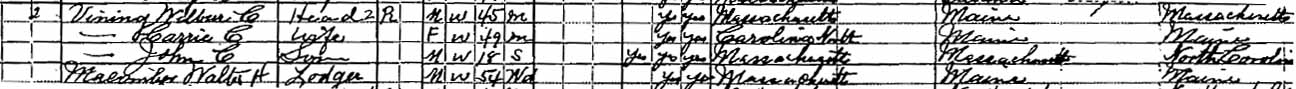 2 Vining Wilbur C Head 2 R M W 45 M Yes Yes Massachusetts Maine Massachusetts
— Carrie E Wife F W 49 M Yes Yes Carolina North Maine Maine
— John C Son M W 18 S Yes Yes Yes Massachusetts Massachusetts North Carolina
Macomber Walter H Lodger M W 54 Wd Yes Yes Massachusetts Maine Maine